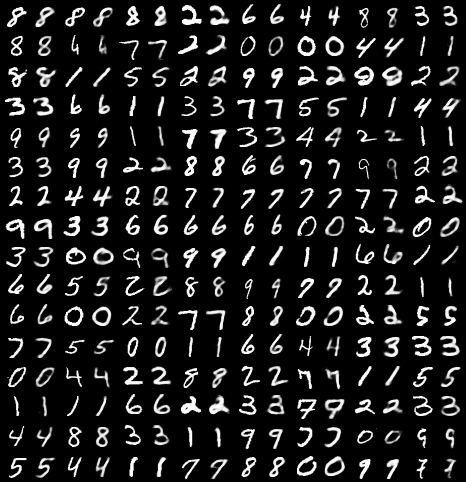 8 8 8 8 8 8 2 2 6 6 4 4 8 8 3 3
8 8 6 6 7 7 2 2 0 0 0 0 4 4 1 1
8 8 1 1 5 5 2 2 9 9 2 2 2 2
3 3 6 6 1 1 3 3 7 7 5 5 1 1 4 4
9 9 9 9 1 1 7 7 3 3 4 4 2 2 1 1
3 3 9 9 2 2 8 8 6 6 7 7 9 9 2 2
2 2 4 4 2 2 7 7 7 7 7 7 7 7 2 2
9 9 3 3 6 6 6 6 6 6 0 0 2 2 0 0
3 3 0 0 9 9 9 9 1 1 1 1 6 6 1 1
6 6 5 5 2 2 8 8 9 9 7 7 2 2 1 1
6 6 0 0 2 2 7 7 8 8 0 0 2 2 5 5
7 7 5 5 0 0 1 1 6 6 4 4 3 3 3 3
0 0 4 4 2 2 8 8 2 2 7 7 1 1 5 5
1 1 1 1 6 6 2 2 3 3 7 2 2 3 3
4 4 8 8 3 3 1 1 9 9 7 7 0 0 9 9
5 5 4 4 1 1 7 7 8 8 0 0 9 9 7 7